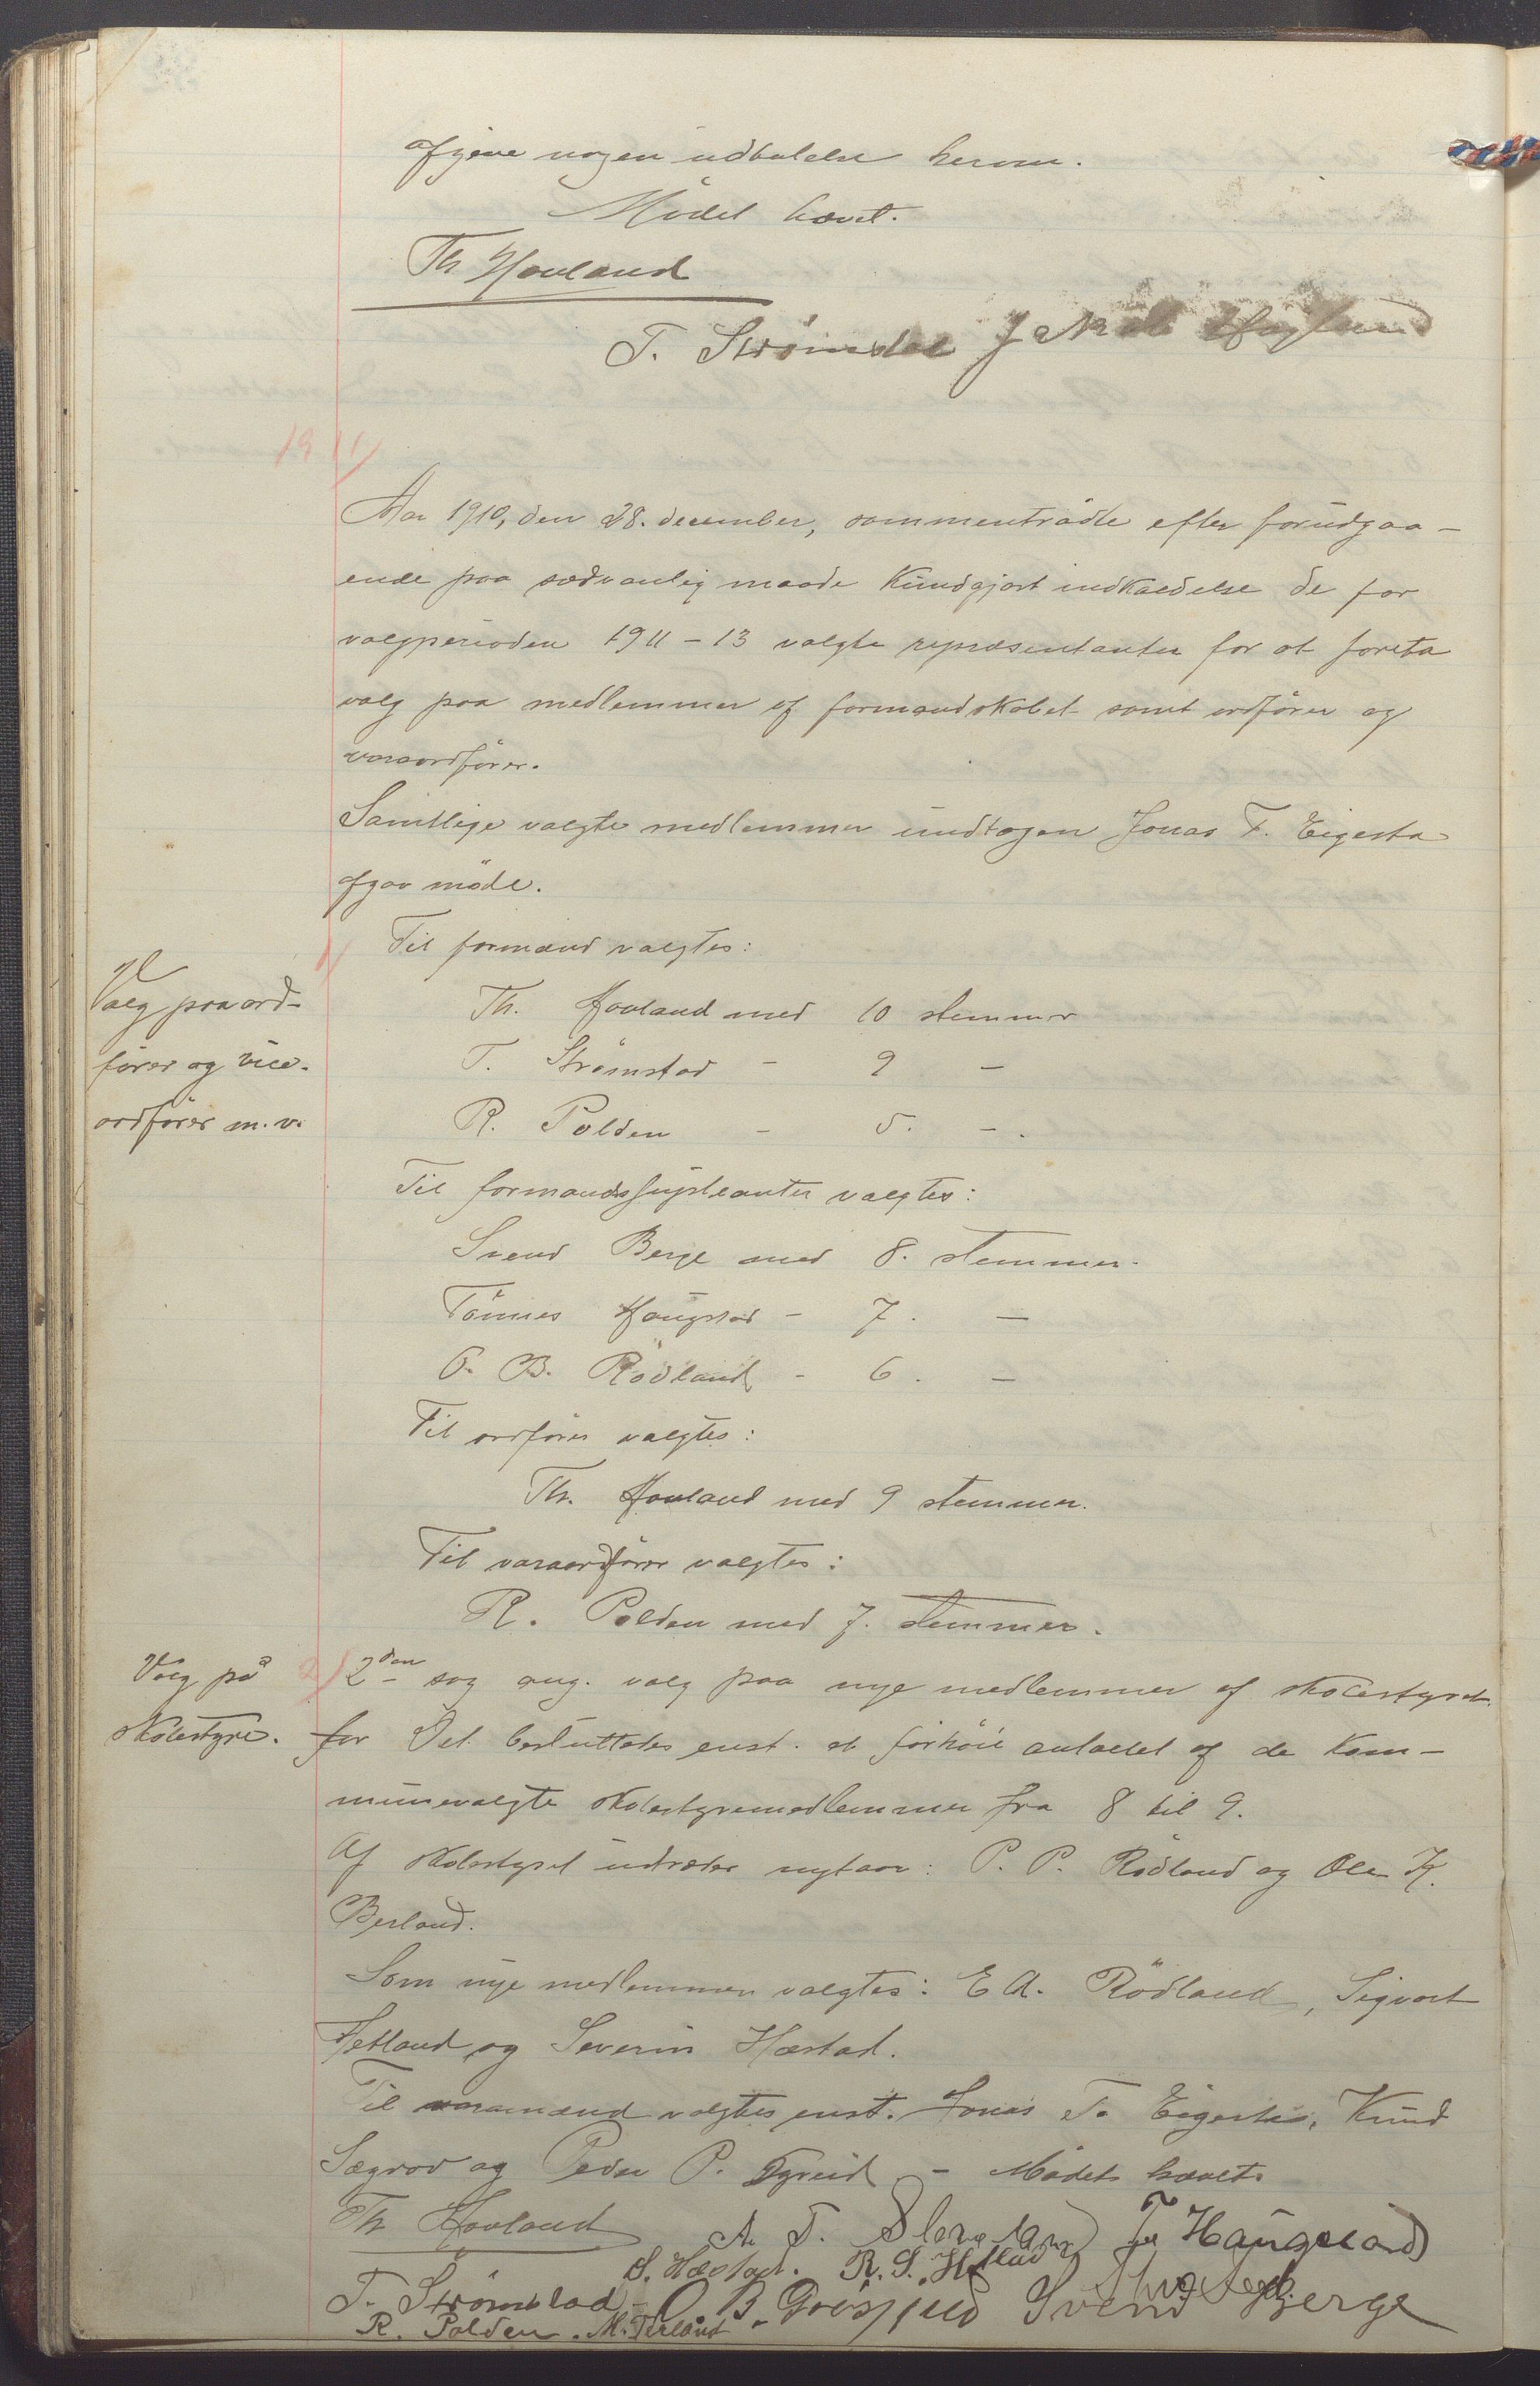 afgive nogen udtalelse herom.
Mödet hævet.
Th Hovland
T. Strömstad Jakob
1911
Aar 1910, den 28. december, sammentraadte efter forudgaa-
ende paa sædvanlig maade kundgjort indkaldelse de for
valgperioden 1911-13 valgte repræsentanter for at foreta
valg paa medlemmer af formandskabet samt ordförer og
varaordförer.
Samtlige valgte medlemmer undtagen Jonas T. Eigesta
afgav möde.
1/ Til formænd valgtes:
Valg paa ord-
förer og vice-
ordförer m. v.
Th. Hovland med 10 stemmer
T. Strömstad - 9 -
R. Polden - 5. -.
Til formandssupleanter valgtes:
Svend Berge med 8. stemmer.
Tönnes Haugstad - 7. -
O. B. Rödland - 6. -
Til ordförer valgtes:
Th. Hovland med 9 stemmer.
Til varaordförer valgtes:
R. Polden med 7. stemmer.
Valg på
skolestyre.
2/ 2den sag ang. valg paa nye medlemmer af skolestyret
for Det besluttedes enst. at forhöie antallet af de kom-
munevalgte skolestyremedlemmer fra 8 til 9.
Af skolestyret udtræder nytaar: P. P. Rödland og Ole K.
Berland.
Som nye medlemmer valgtes: E A. Rödland, Sigvart
Hetland og Severin Hæstad.
Til varamænd valgtes enst. Jonas T. Eigesta, Knud
Sægrov og Peder P. - Mödet hævet.
Th Hovland A. T. T Haugstad
S. Hæstad. R. S. Hetland
T. Strömstad - O B. Svend Berge
R. Polden. M. Terland